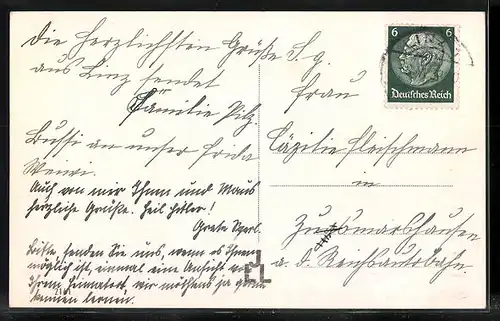 Die herzlichsten Grüße S. g.
aus Linz sendet
Familie Pilz.
Bussi an unser Frida
Auch von mir Ihnen und Maus
herzliche Grüße. Heil Hitler!
Grete
Bitte, senden Sie uns, wenn es Ihnen
möglich ist, einmal eine Ansicht von
Ihrem Heimatort, wir möchten ja gerne
kennen lernen.
6 6
Deutsches Reich
Frau
Cäzilie Fleischmann
in
Zusmarshausen
a. d. Reichsautobahn